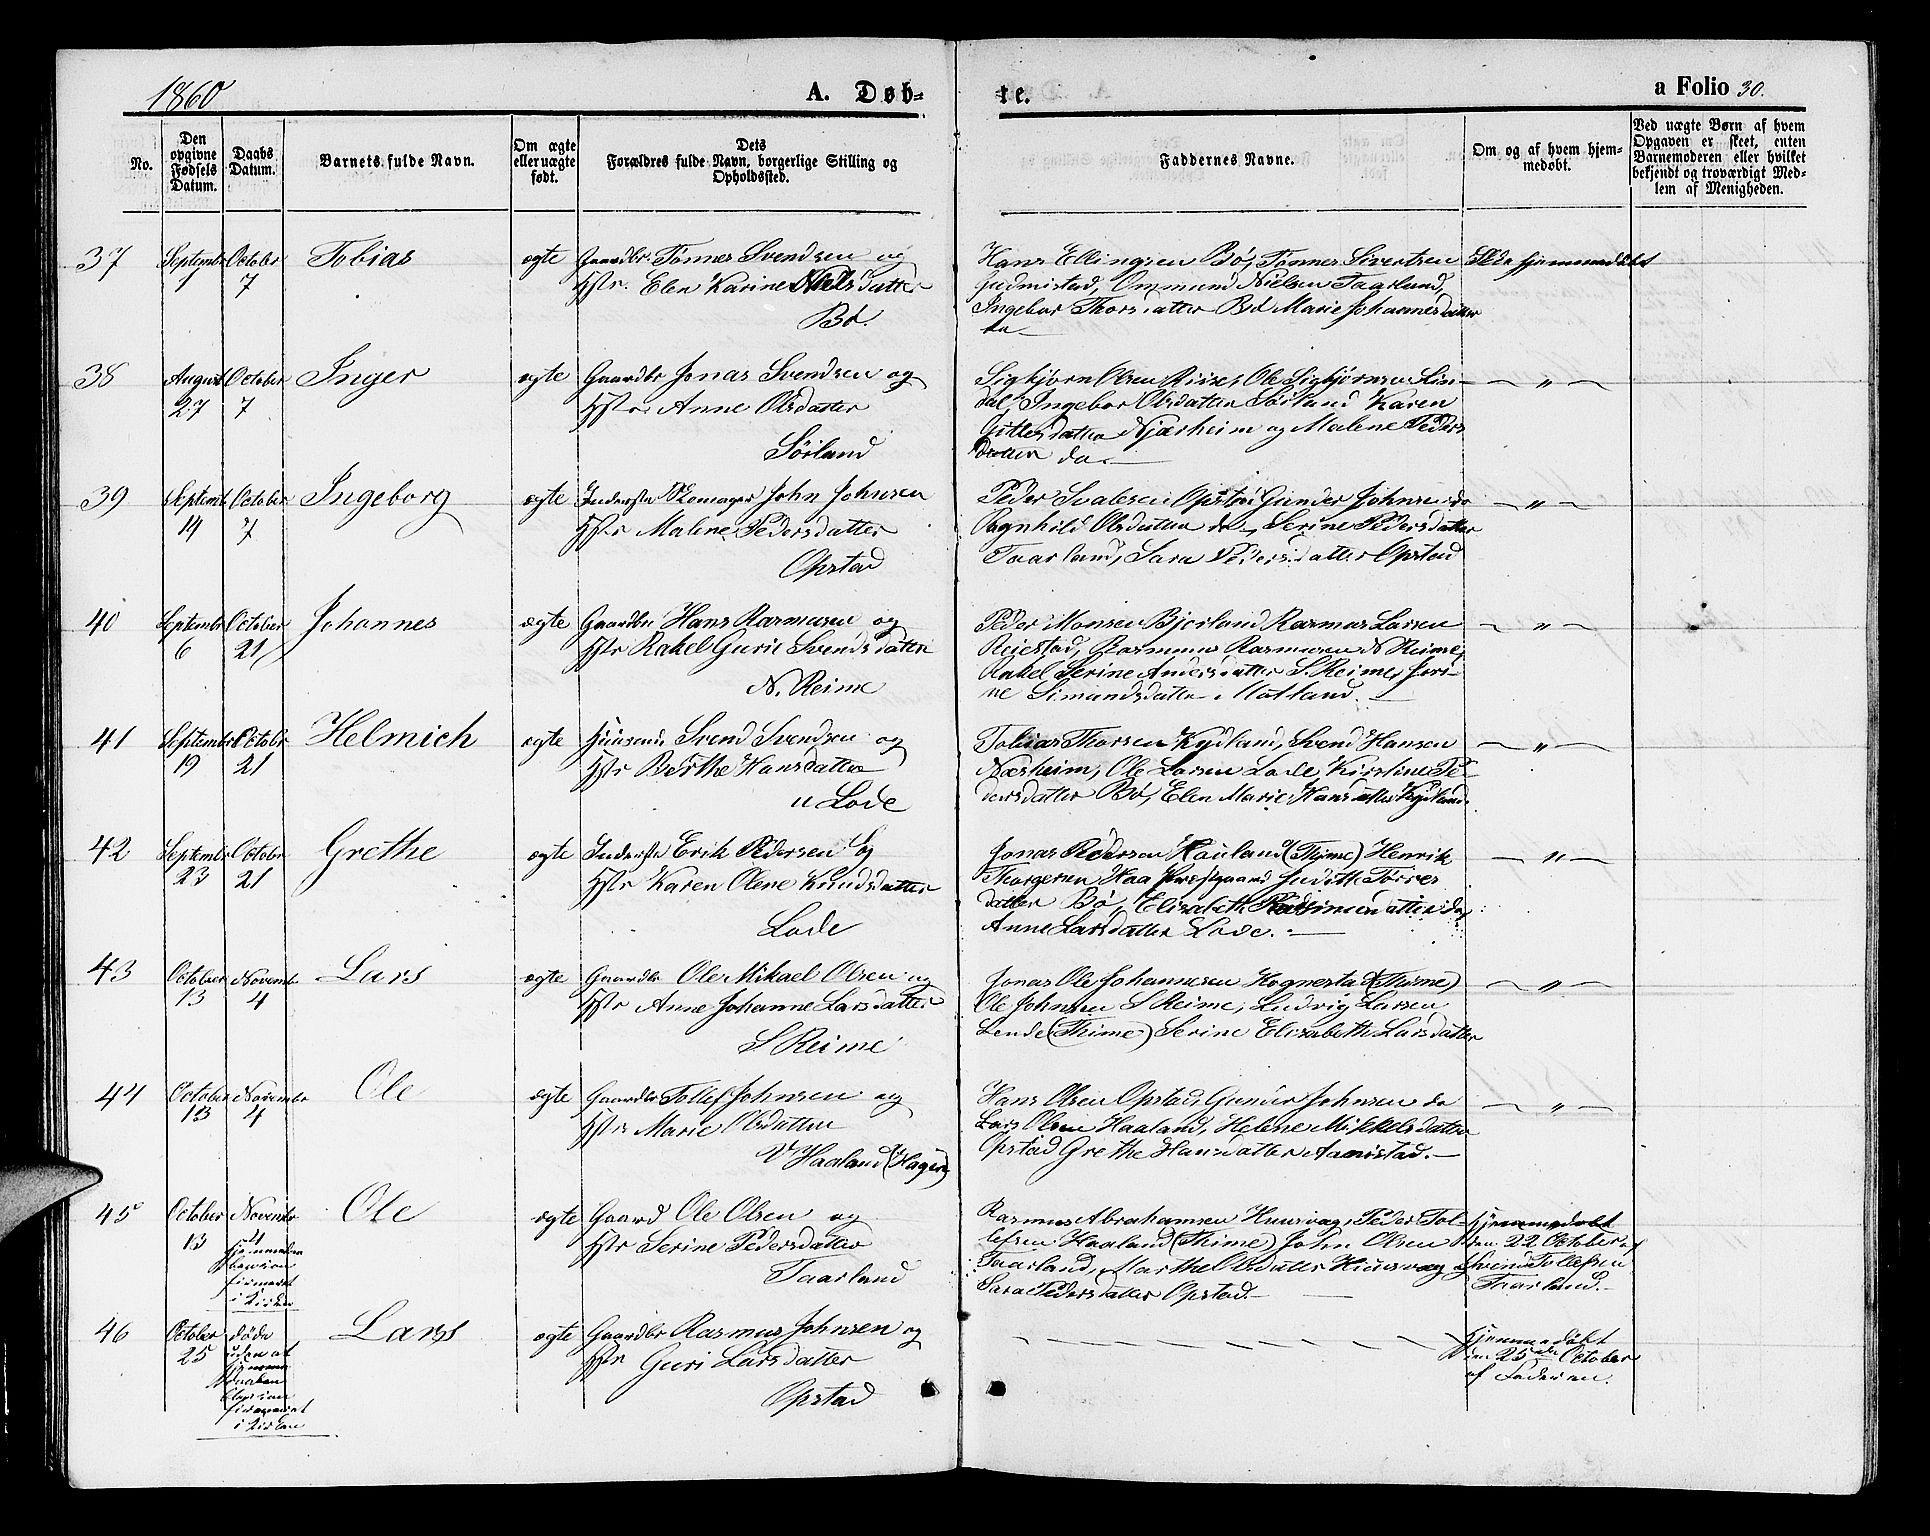 1860
A. Døb-
te.
a Folio 30.
No.
Den opgivne Fødsels Datum.
Daabs Datum.
Barnets fulde Navn.
Om ægte eller uægte født.
Dets Forældres fulde Navn, borgerlige Stilling og Opholdssted.
Faddernes Navne.
Om og af hvem hjem-
medøbt.
Ved uægte Børn af hvem
Opgaven er skeet, enten
Barnemoderen eller hvilket
bekjendt og troværdigt Med-
lem af Menigheden.
37 Septembr October 7 Tobias ægte Gaardbr Tønnes Svendsen og
Hstr. Elen Karine Nielsdatter
Bø.
Hans Ellingsen Bø, Tønnes Sivertsen
Ommund Nielsen Taarland,
Ingebor Thorsdatter Bø Marie Johannesdatter
do
38 August 27 October 7 Inger ægte Gaardbr Jonas Svendsen og
Hstr. Anne Olsdatter
Söiland
Sigbjørn Olsen Riise, Ole Sigbjørnsen Lin-
dal, Ingebor Olsdatter Søiland Karen
Njærheim og Malene Peders
datter do
— " —
39 Septemb 14 October 7 Ingeborg ægte Inderste Skomager John Johnsen
Hstr Malene Pedersdatter
Opstad
Peder Opstad Gunder Johnsen do
Ragnhild Olsdatter do, Serine Pedersdatter
Taarland, Sara Pedersdatter Opstad
— " —
40 Septembr 6 October 21 Johannes ægte Gaardbr Hans Rasmusen og
Hstr Rakel Gurie Svendsdatter
N. Reime
Peder Monsen Bjorland Rasmus Larsen
Reiestad, Rasmus Rasmusen N Reime,
Rakel Serine Andersdatter S. Reime, Seri-
ne Simundsdatter Motland.
— " —
41 Septembr 19 Octobr 21 Helmich ægte Huusm. Svend Svendsen og
Hstr Berthe Hansdatter
u Lode
Tobias Thorsen Kydland, Svend Hansen
Nærheim, Ole Larsen Lode, Kirstine Pe-
dersdatter Bø, Elen Marie Hansdatter Kydland
— " —
42 Septembr 23 Octobr 21 Grethe ægte Inderste Erik Pedersen og
Hstr Karen Olene Knudsdatter
Lode
Jonas Pedersen Hauland (Thime) Henrik
Thorgersen Haa Præstgaard Judith Torres
datter Bø, Elisabeth Rasmusdatter do,
Anne Larsdatter Lode.
— " —
43 October 13 Novembr 4 Lars ægte Gaardbr Ole Mikael Olsen og
Hstr Anne Johanne Larsdatter
S Reime
Jonas Ole Johannesen Hognestad (Thime)
Ole Johnsen S Reime, Ludvig Larsen
Lende (Thime) Serine Elizabeth Larsdatter
— " —
44 October 13 Novembr 4 Ole ægte Gaardbr Tollef Johnsen og
Hstr Marie Olsdatter
V Haaland (Hagen)
Hans Olsen Opstad, Gunder Johnsen do
Lars Olsen Haaland, Helene Mikkelsdatter
Opstad Grethe Hansdatter Aanistad.
— " —
45 October 13 Novembr 4
hjemmedaaben
i Kirken
Ole ægte Gaard Ole Olsen og
Hstr Serine Pedersdatter
Taarland
Rasmus Abrahamsen Huusvaag, Peder Tol-
lefsen Haaland (Thime) John Olsen
Taarland, Marthe Olsdatter Huusvaag
Sara Pedersdatter Opstad.
Hjemmedøbt
den 22 October af
Svend Tollefsen
Taarland.
46 October 25 døde
uden at
hjemme
daaben
i Kirken
Lars ægte Gaardbr Rasmus Johnsen og
Hstr Guri Larsdatter
Opstad
Hjemmedøbt
den 25 October
af Faderen.